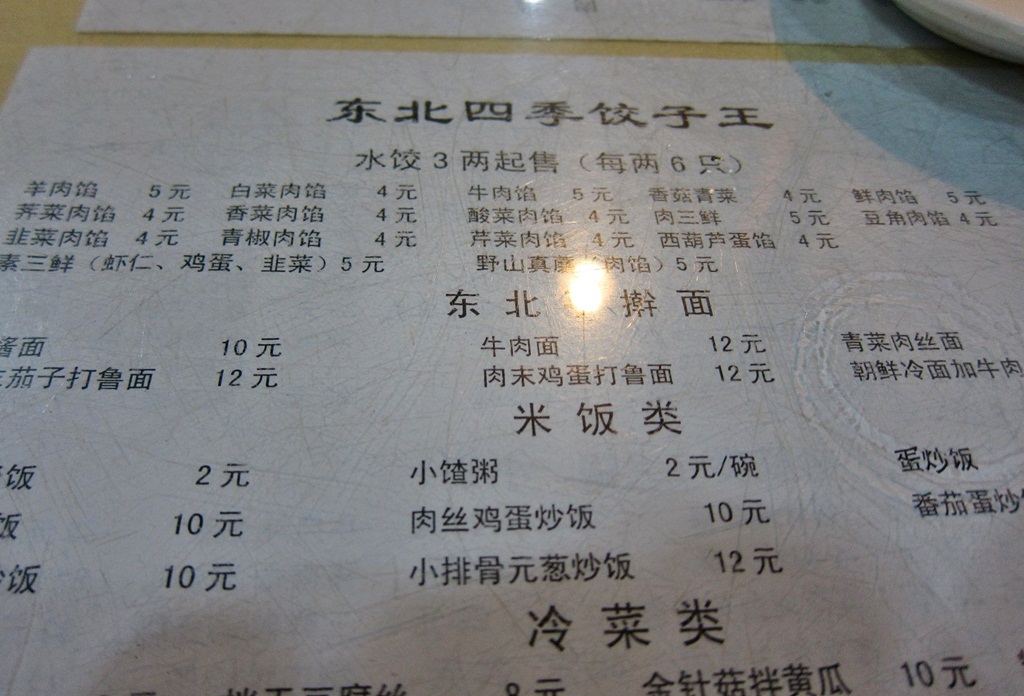 东北四季饺子王
水饺3两起售（每两6只）
羊肉馅 5元 白菜肉馅 4元 牛肉馅 5元 香菇青菜 4元 鲜肉馅 5元
荠菜肉馅 4元 香菜肉馅 4元 酸菜肉馅 4元 肉三鲜 5元 豆角肉馅 4元
韭菜肉馅 4元 青椒肉馅 4元 芹菜肉馅 4元 西葫芦蛋馅 4元
素三鲜（虾仁、鸡蛋、韭菜）5元 野山真蘑（肉馅）5元
东北 擀面
酱面 10元 牛肉面 12元 青菜肉丝面
茄子打鲁面 12元 肉末鸡蛋打鲁面 12元 朝鲜冷面加牛肉
米饭类
饭 2元 小馇粥 2元/碗 蛋炒饭
饭 10元 肉丝鸡蛋炒饭 10元 番茄蛋炒
炒饭 10元 小排骨元葱炒饭 12元
冷菜类
8元 金针菇拌黄瓜 10元